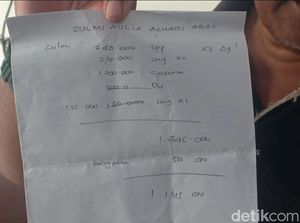 ZULMI AULIA AZHARI ABAS
Zulmi 240 000 Spp XII Ag 1
270 000 Ung XII
1.000.000 Syuturm
500.0 DU
135.000 Ung XI
1.645.000
500 000
1.145 000
detikcom